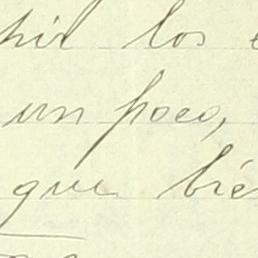 los
un poco,
que bié